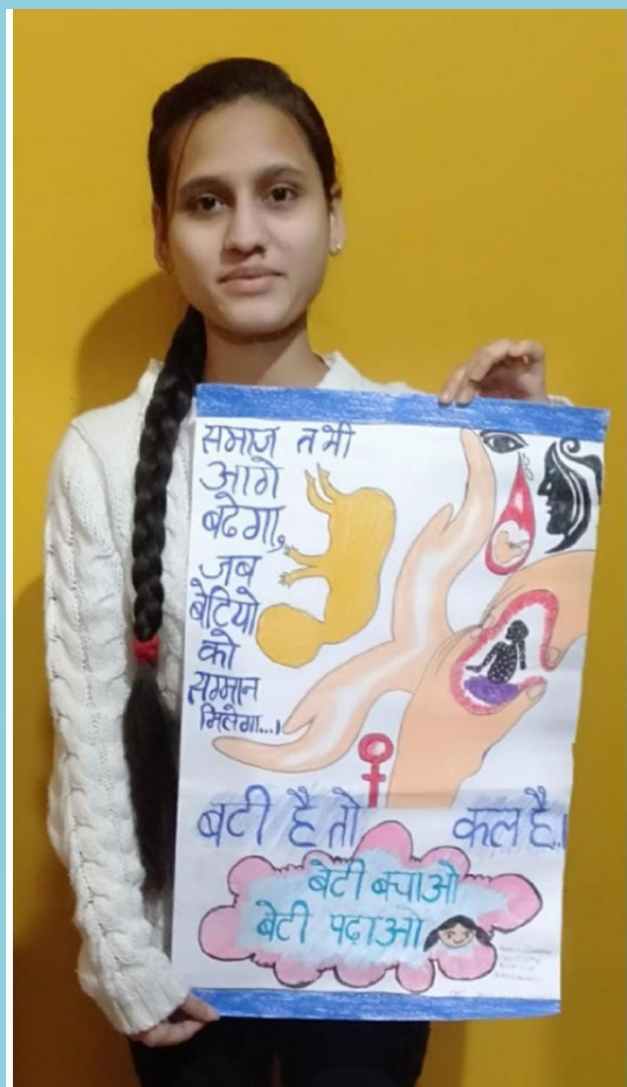 समाज तभी
आगे
बढेगा,
जब
बेटियो
को
सम्मान
मिलेगा...।
बटी है तो कल है..।
बेटी बचाओ
बेटी पढाओ